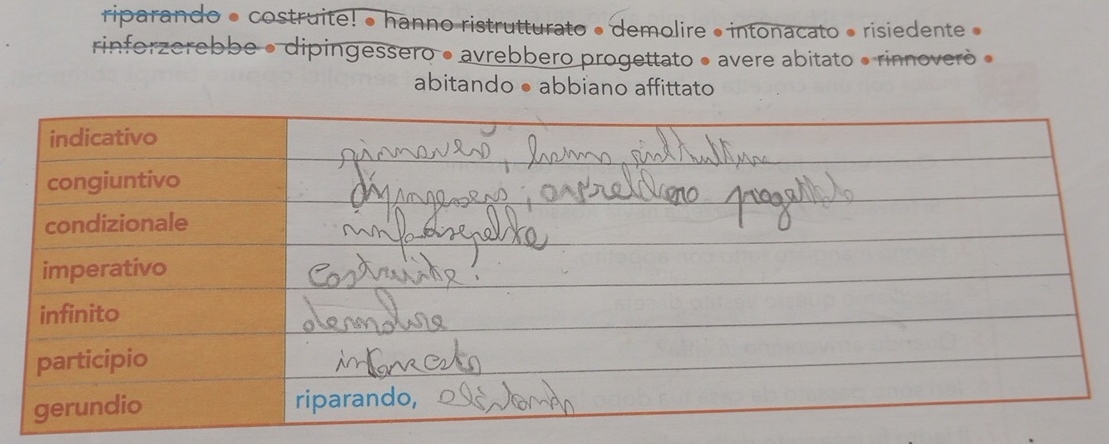 riparando • costruite! • hanno ristrutturato • demolire • intonacato • risiedente •
rinforzerebbe • dipingessero • avrebbero progettato • avere abitato • rinnoverò •
abitando • abbiano affittato
indicativo rinnoverò, hanno
congiuntivo dipingessero, avrebbero progettato
condizionale
imperativo costruite!
infinito demolire
participio intonacato
gerundio riparando, abitando